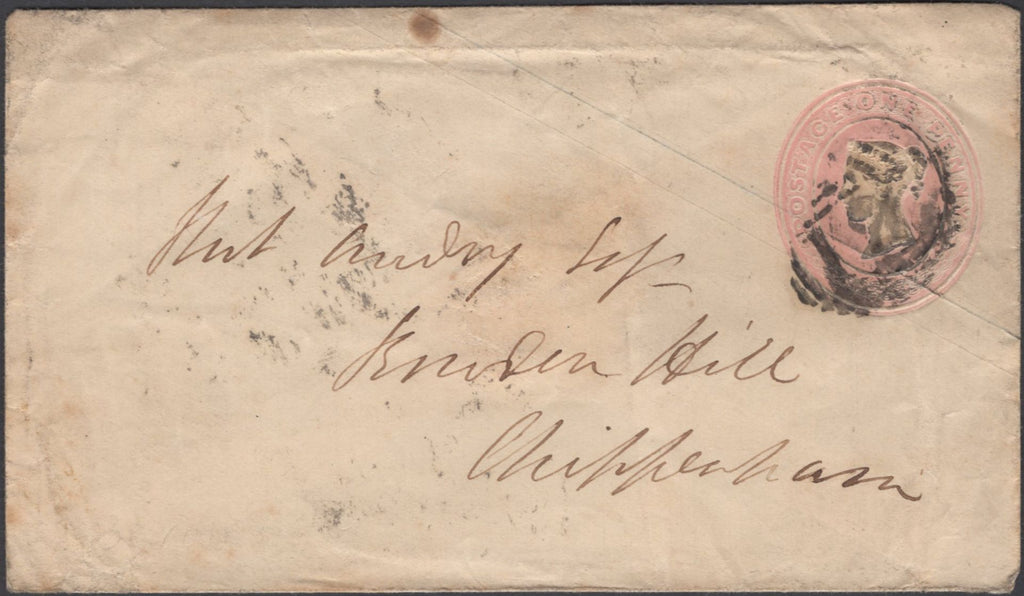 POSTAGE ONE PENNY
Audry Esqr
Bowden Hill
Chippenham